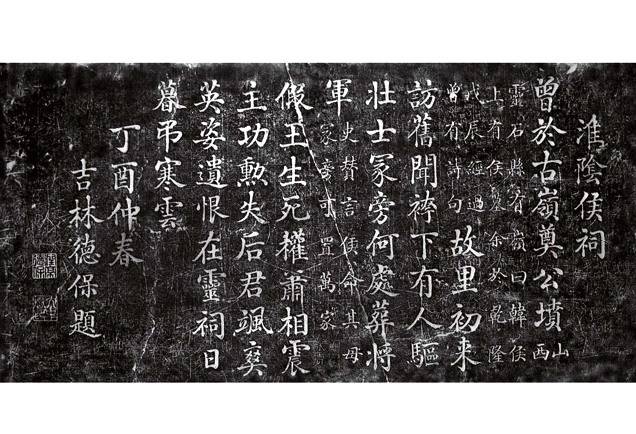 淮陰侯祠
曾於古嶺奠公墳山西
靈石縣有嶺曰韓侯
上有侯墓余於乾隆
戊辰經過
曾有詩句
故里初来
訪舊聞袴下有人驅
壯士冢旁何處葬將
軍
史贊言侯命其母
冢旁可置萬家
假王生死權蕭相震
主功勳失后君颯爽
英姿遺恨在靈祠日
暮弔寒雲
丁酉仲春
吉林德保題